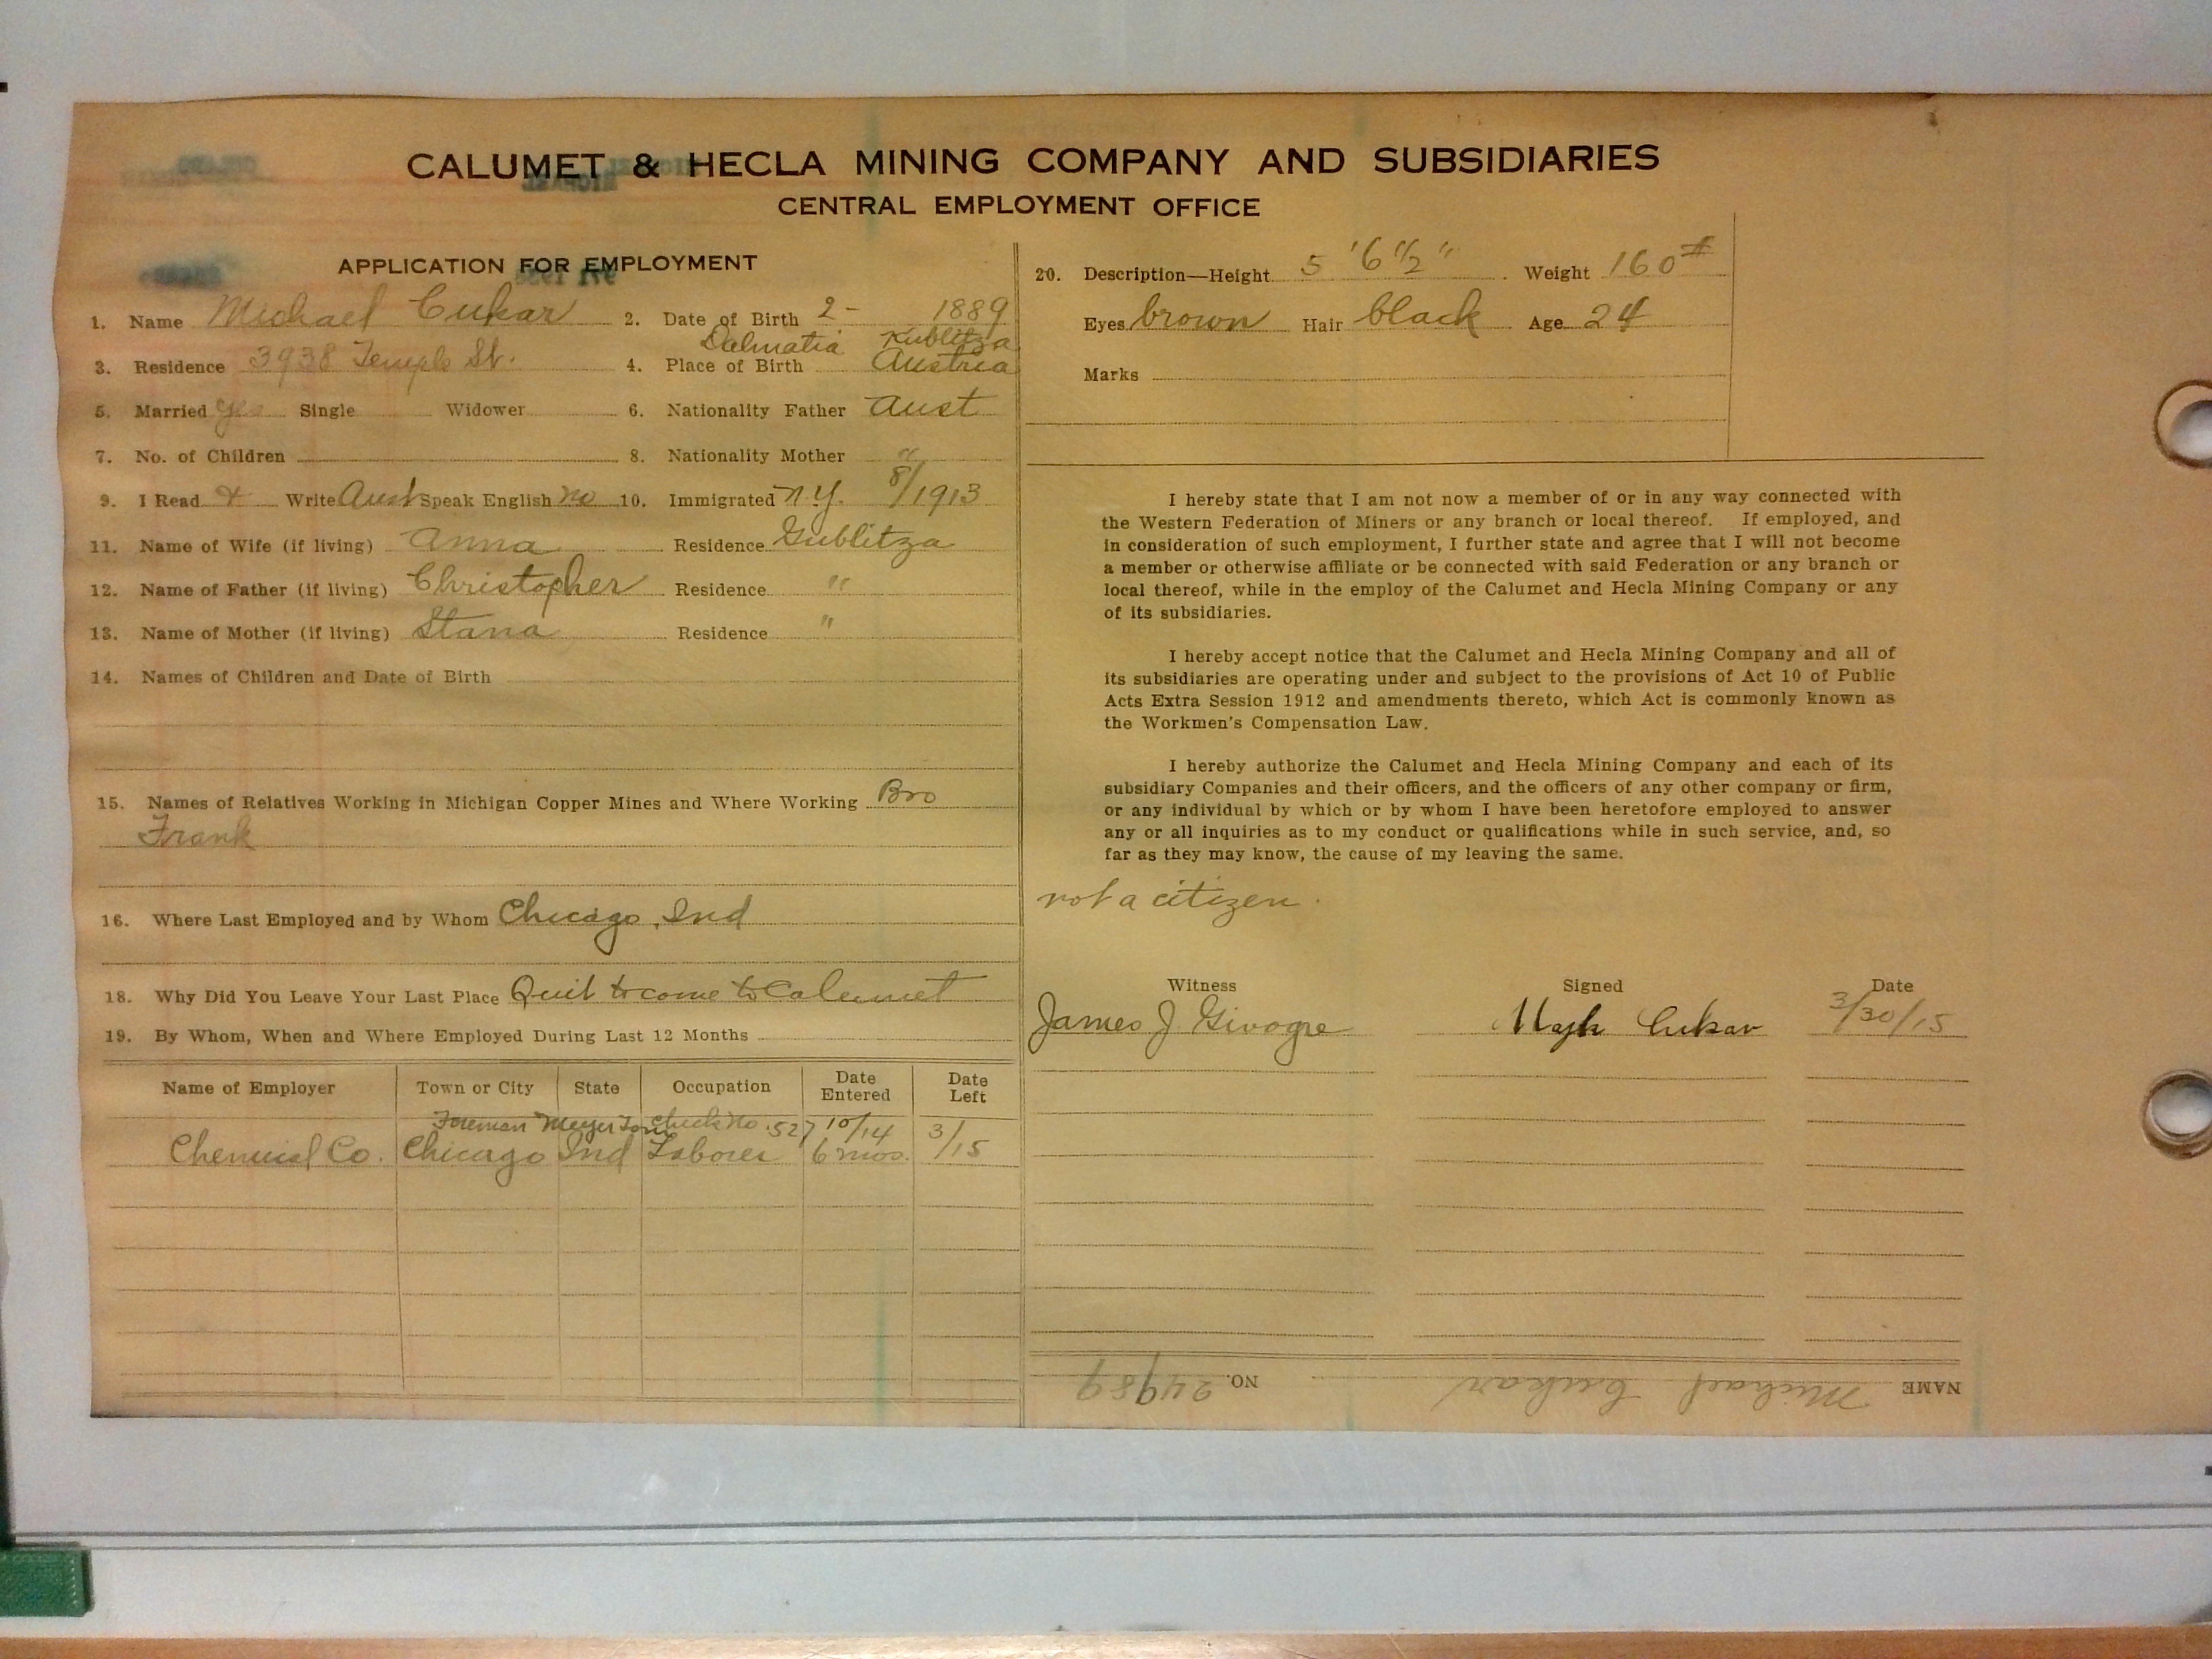 CALUMET & HECLA MINING COMPANY AND SUBSIDIARIES
CENTRAL EMPLOYMENT OFFICE
APPLICATION FOR EMPLOYMENT
1. Name Michael Cukar 2. Date of Birth 2- 1889
Dalmatia Kublitza
3. Residence 3938 Temple St. 4. Place of Birth Austria
5. Married yes Single Widower 6. Nationality Father Aust
7. No. of Children 8. Nationality Mother "
9. I Read & Write Aust Speak English no 10. Immigrated N.Y. 8/1913
11. Name of Wife (if living) Anna Residence Gublitza
12. Name of Father (if living) Christopher Residence "
13. Name of Mother (if living) Stana Residence "
14. Names of Children and Date of Birth
15. Names of Relatives Working in Michigan Copper Mines and Where Working Bro
Frank
16. Where Last Employed and by Whom Chicago, Ind
18. Why Did You Leave Your Last Place Quit to come to Calumet
19. By Whom, When and Where Employed During Last 12 Months
Name of Employer Town or City State Occupation Date Entered Date Left
Foreman Meyer Check No. 527 10/14 3/15
Chemical Co. Chicago Ind Laborer 6 mos.
20. Description—Height 5 '6 1/2" Weight 160#
Eyes brown Hair black Age 24
Marks
I hereby state that I am not now a member of or in any way connected with
the Western Federation of Miners or any branch or local thereof. If employed, and
in consideration of such employment, I further state and agree that I will not become
a member or otherwise affiliate or be connected with said Federation or any branch or
local thereof, while in the employ of the Calumet and Hecla Mining Company or any
of its subsidiaries.
I hereby accept notice that the Calumet and Hecla Mining Company and all of
its subsidiaries are operating under and subject to the provisions of Act 10 of Public
Acts Extra Session 1912 and amendments thereto, which Act is commonly known as
the Workmen's Compensation Law.
I hereby authorize the Calumet and Hecla Mining Company and each of its
subsidiary Companies and their officers, and the officers of any other company or firm,
or any individual by which or by whom I have been heretofore employed to answer
any or all inquiries as to my conduct or qualifications while in such service, and, so
far as they may know, the cause of my leaving the same.
not a citizen.
Witness Signed Date
James J. Givogre Majk Cukar 3/30/15
NAME Michael Cukar NO. 24989